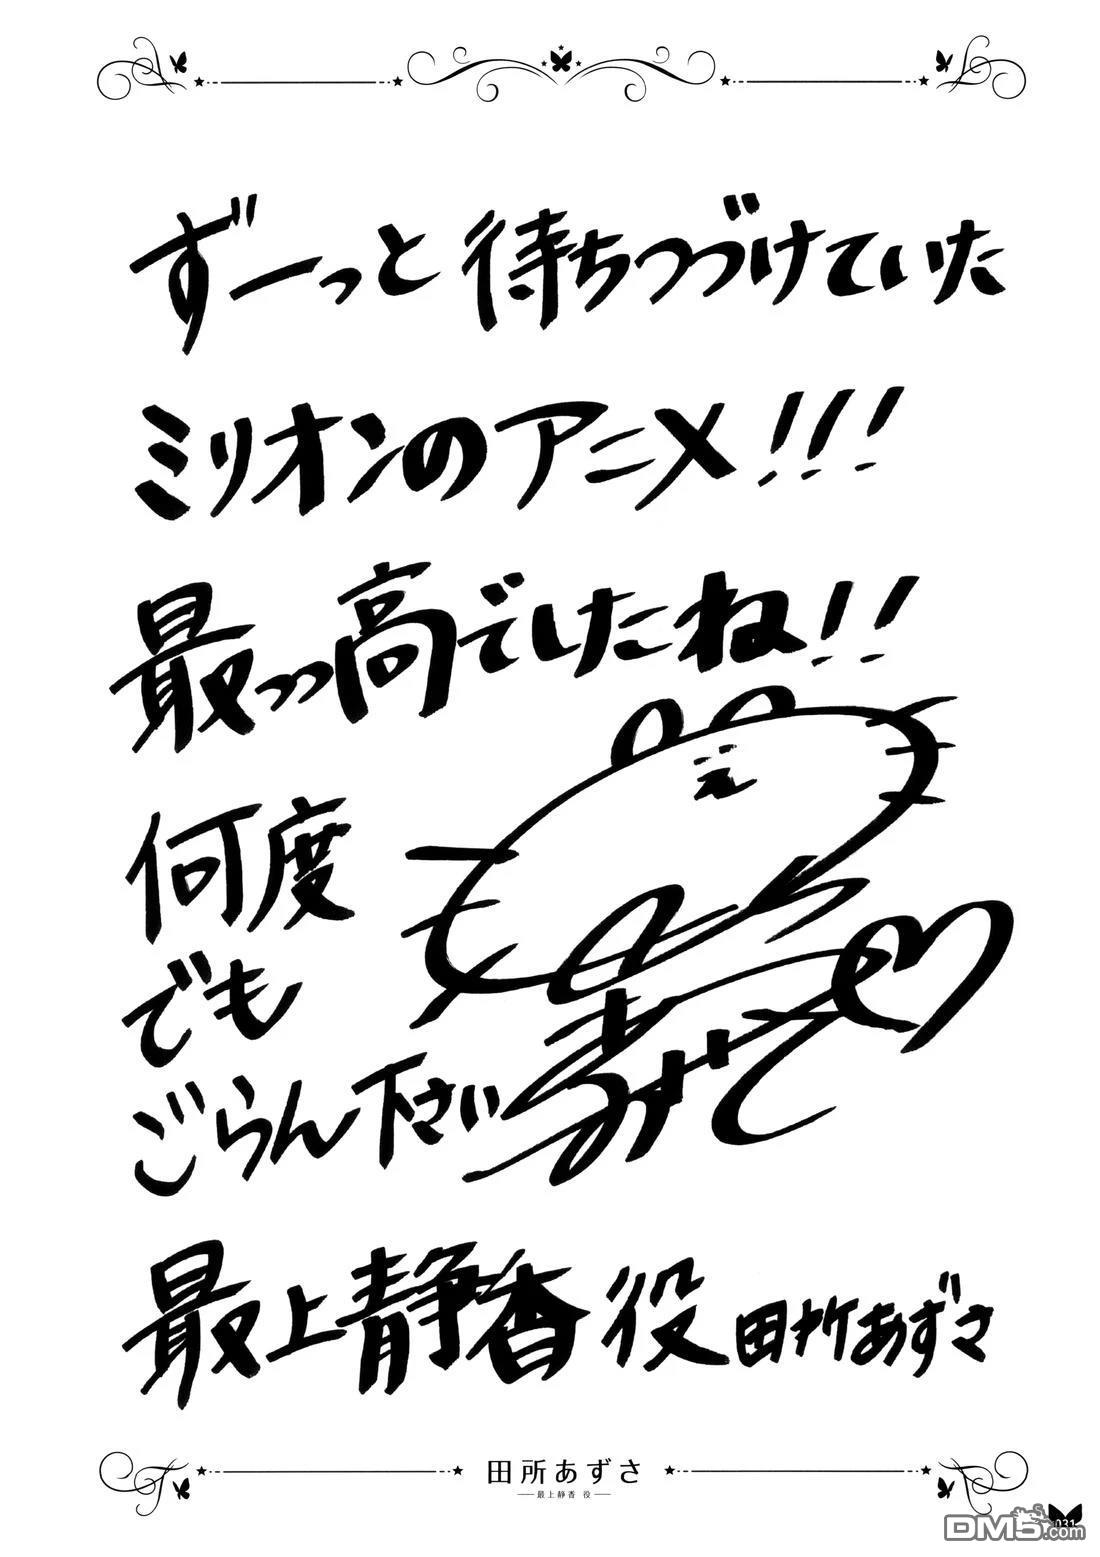 ずーっと待ちつづけていた
ミリオンのアニメ!!!
最っっ高でしたね!!
何度
でも
ごらん下さい
最上静香 役 田所あずさ
田所あずさ
最上静香 役
031
DM5.com